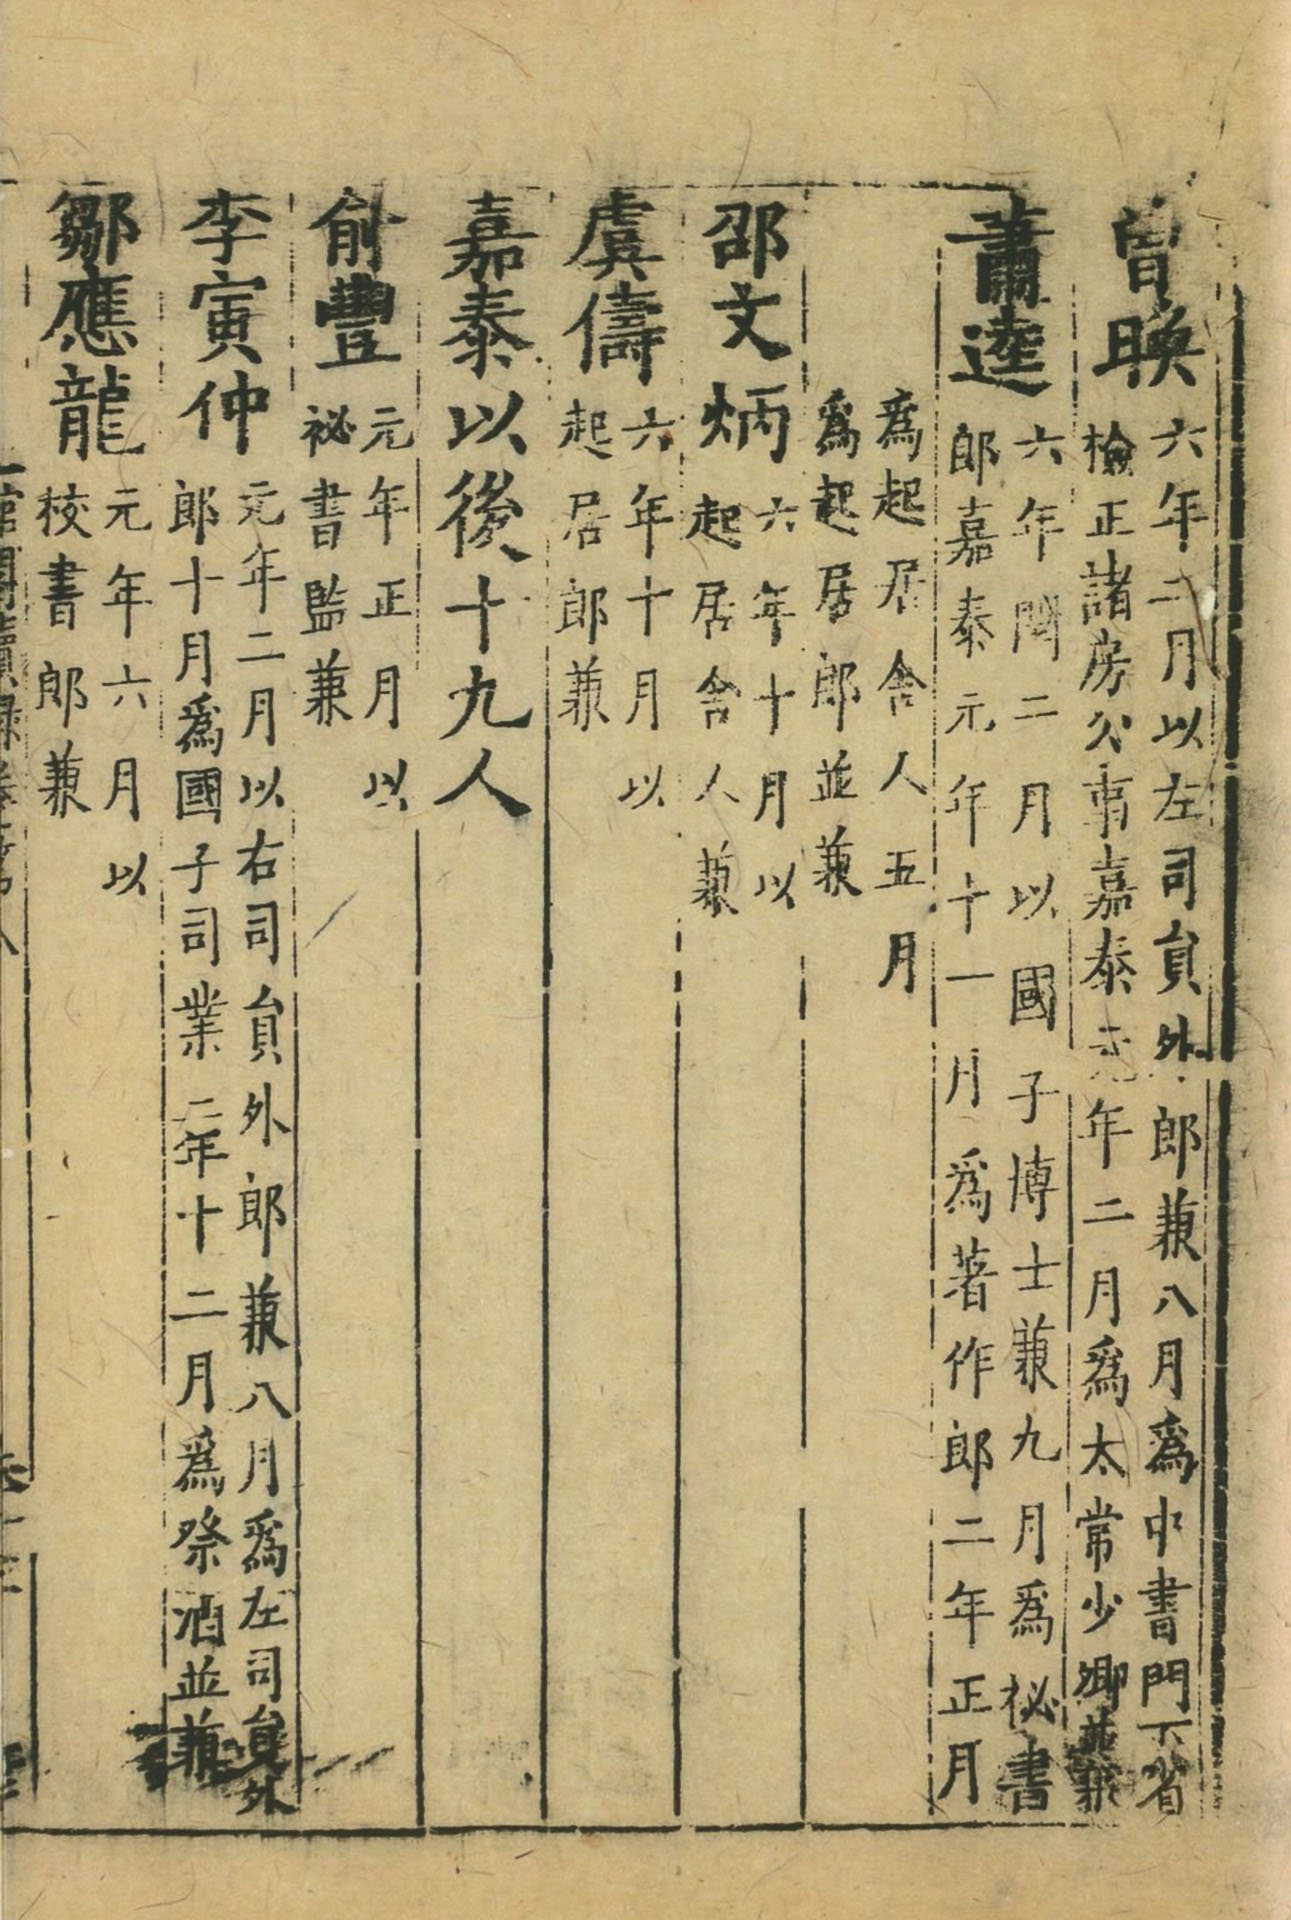 曾㬇
六年二月以左司負外郎兼八月爲中書門下省
檢正諸房公事嘉泰元年二月爲太常少卿並兼
蕭逵
六年閏二月以國子博士兼九月爲祕書
郎嘉泰元年十一月爲著作郎二年正月
爲起居舍人五月
爲起居郎並兼
邵文炳
六年十月以
起居舍人兼
虞儔
六年十月以
起居郎兼
嘉泰以後十九人
俞豐
元年正月以
祕書監兼
李寅仲
元年二月以右司負外郎兼八月爲左司負外
郎十月爲國子司業二年十二月爲祭酒並兼
鄒應龍
元年六月以
校書郎兼